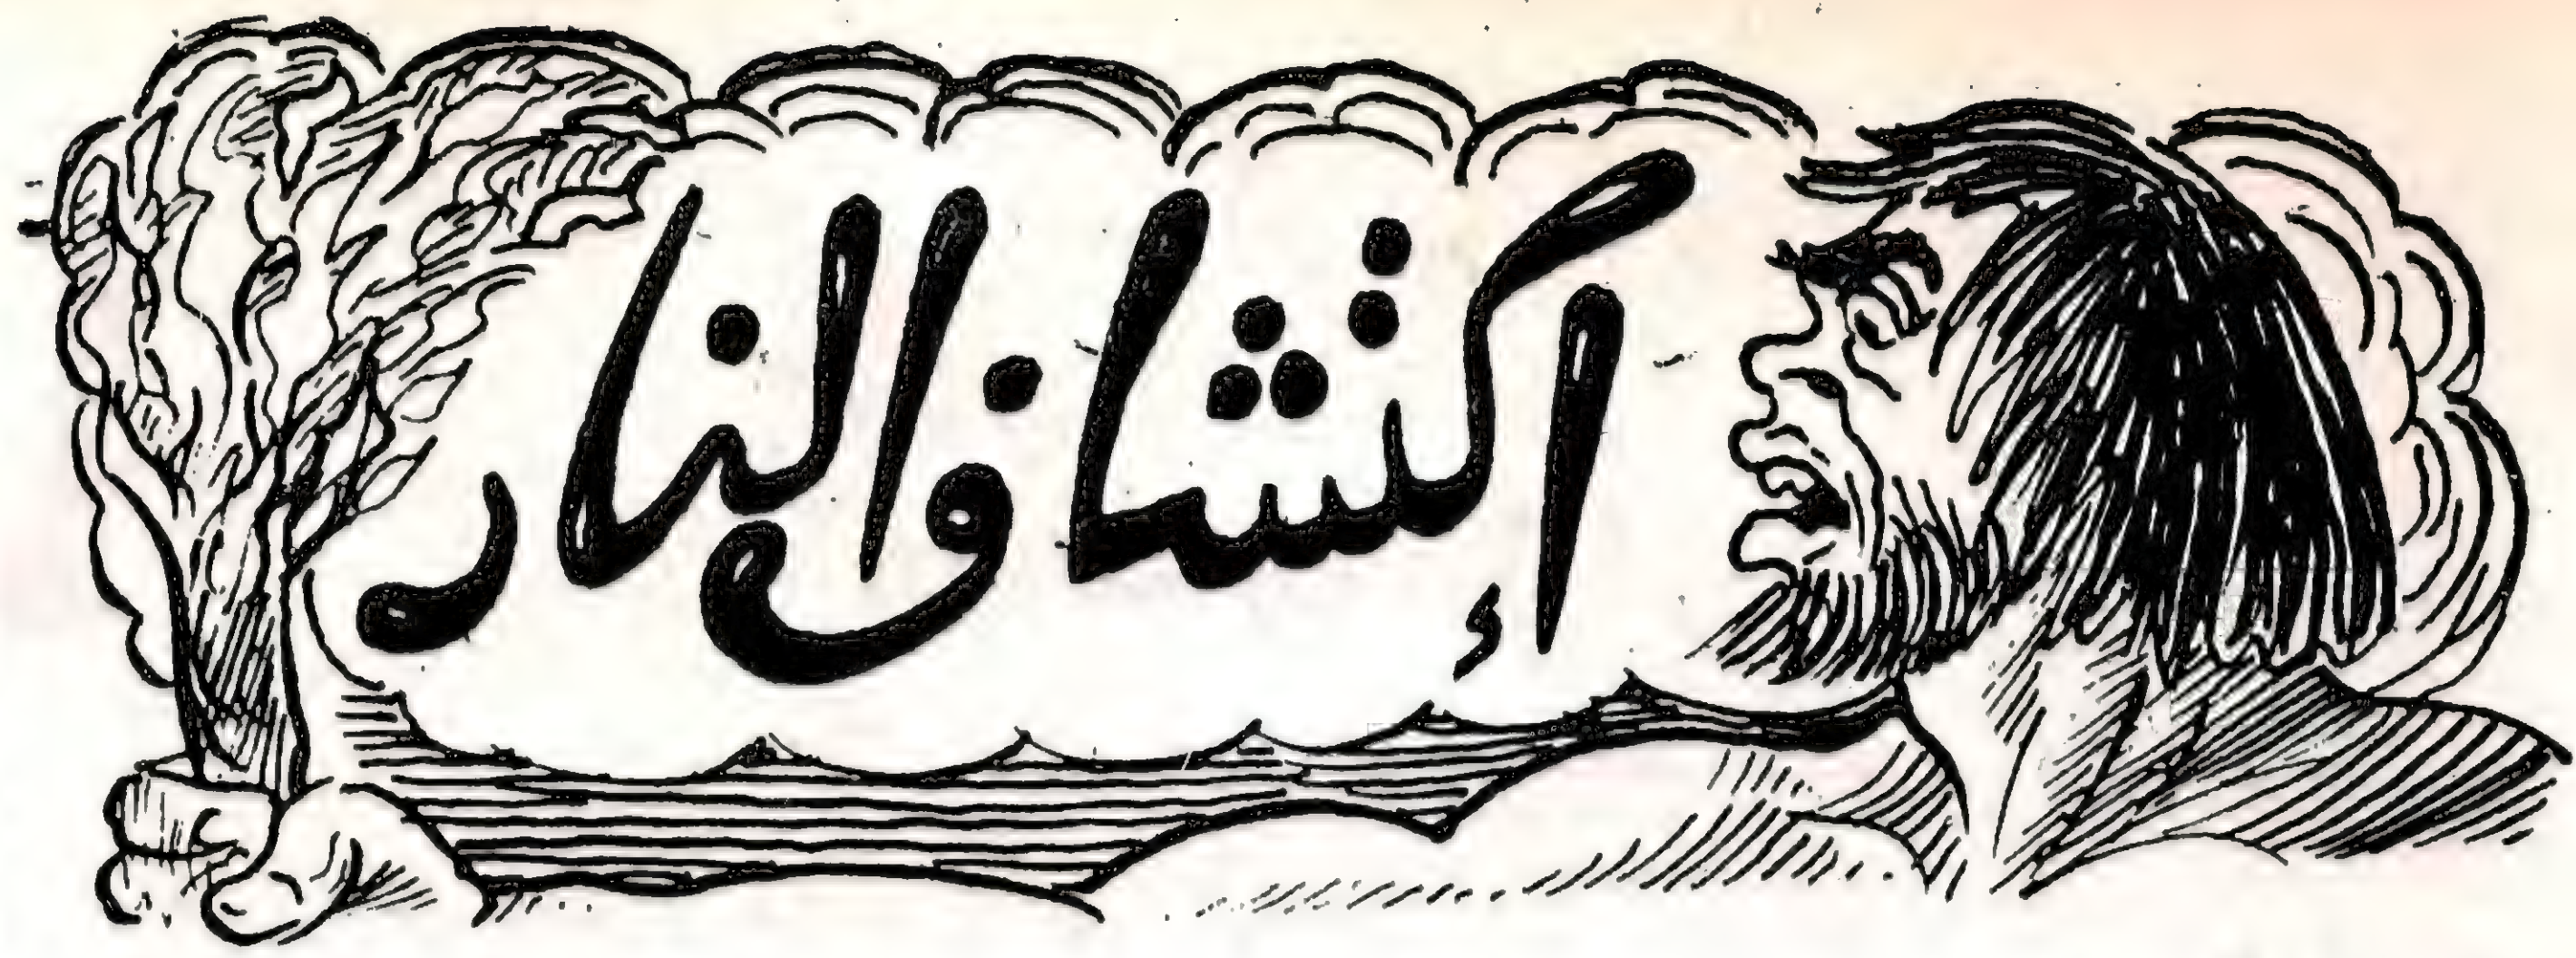 إكتشاف النار